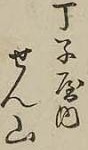 丁子屋内
せん山